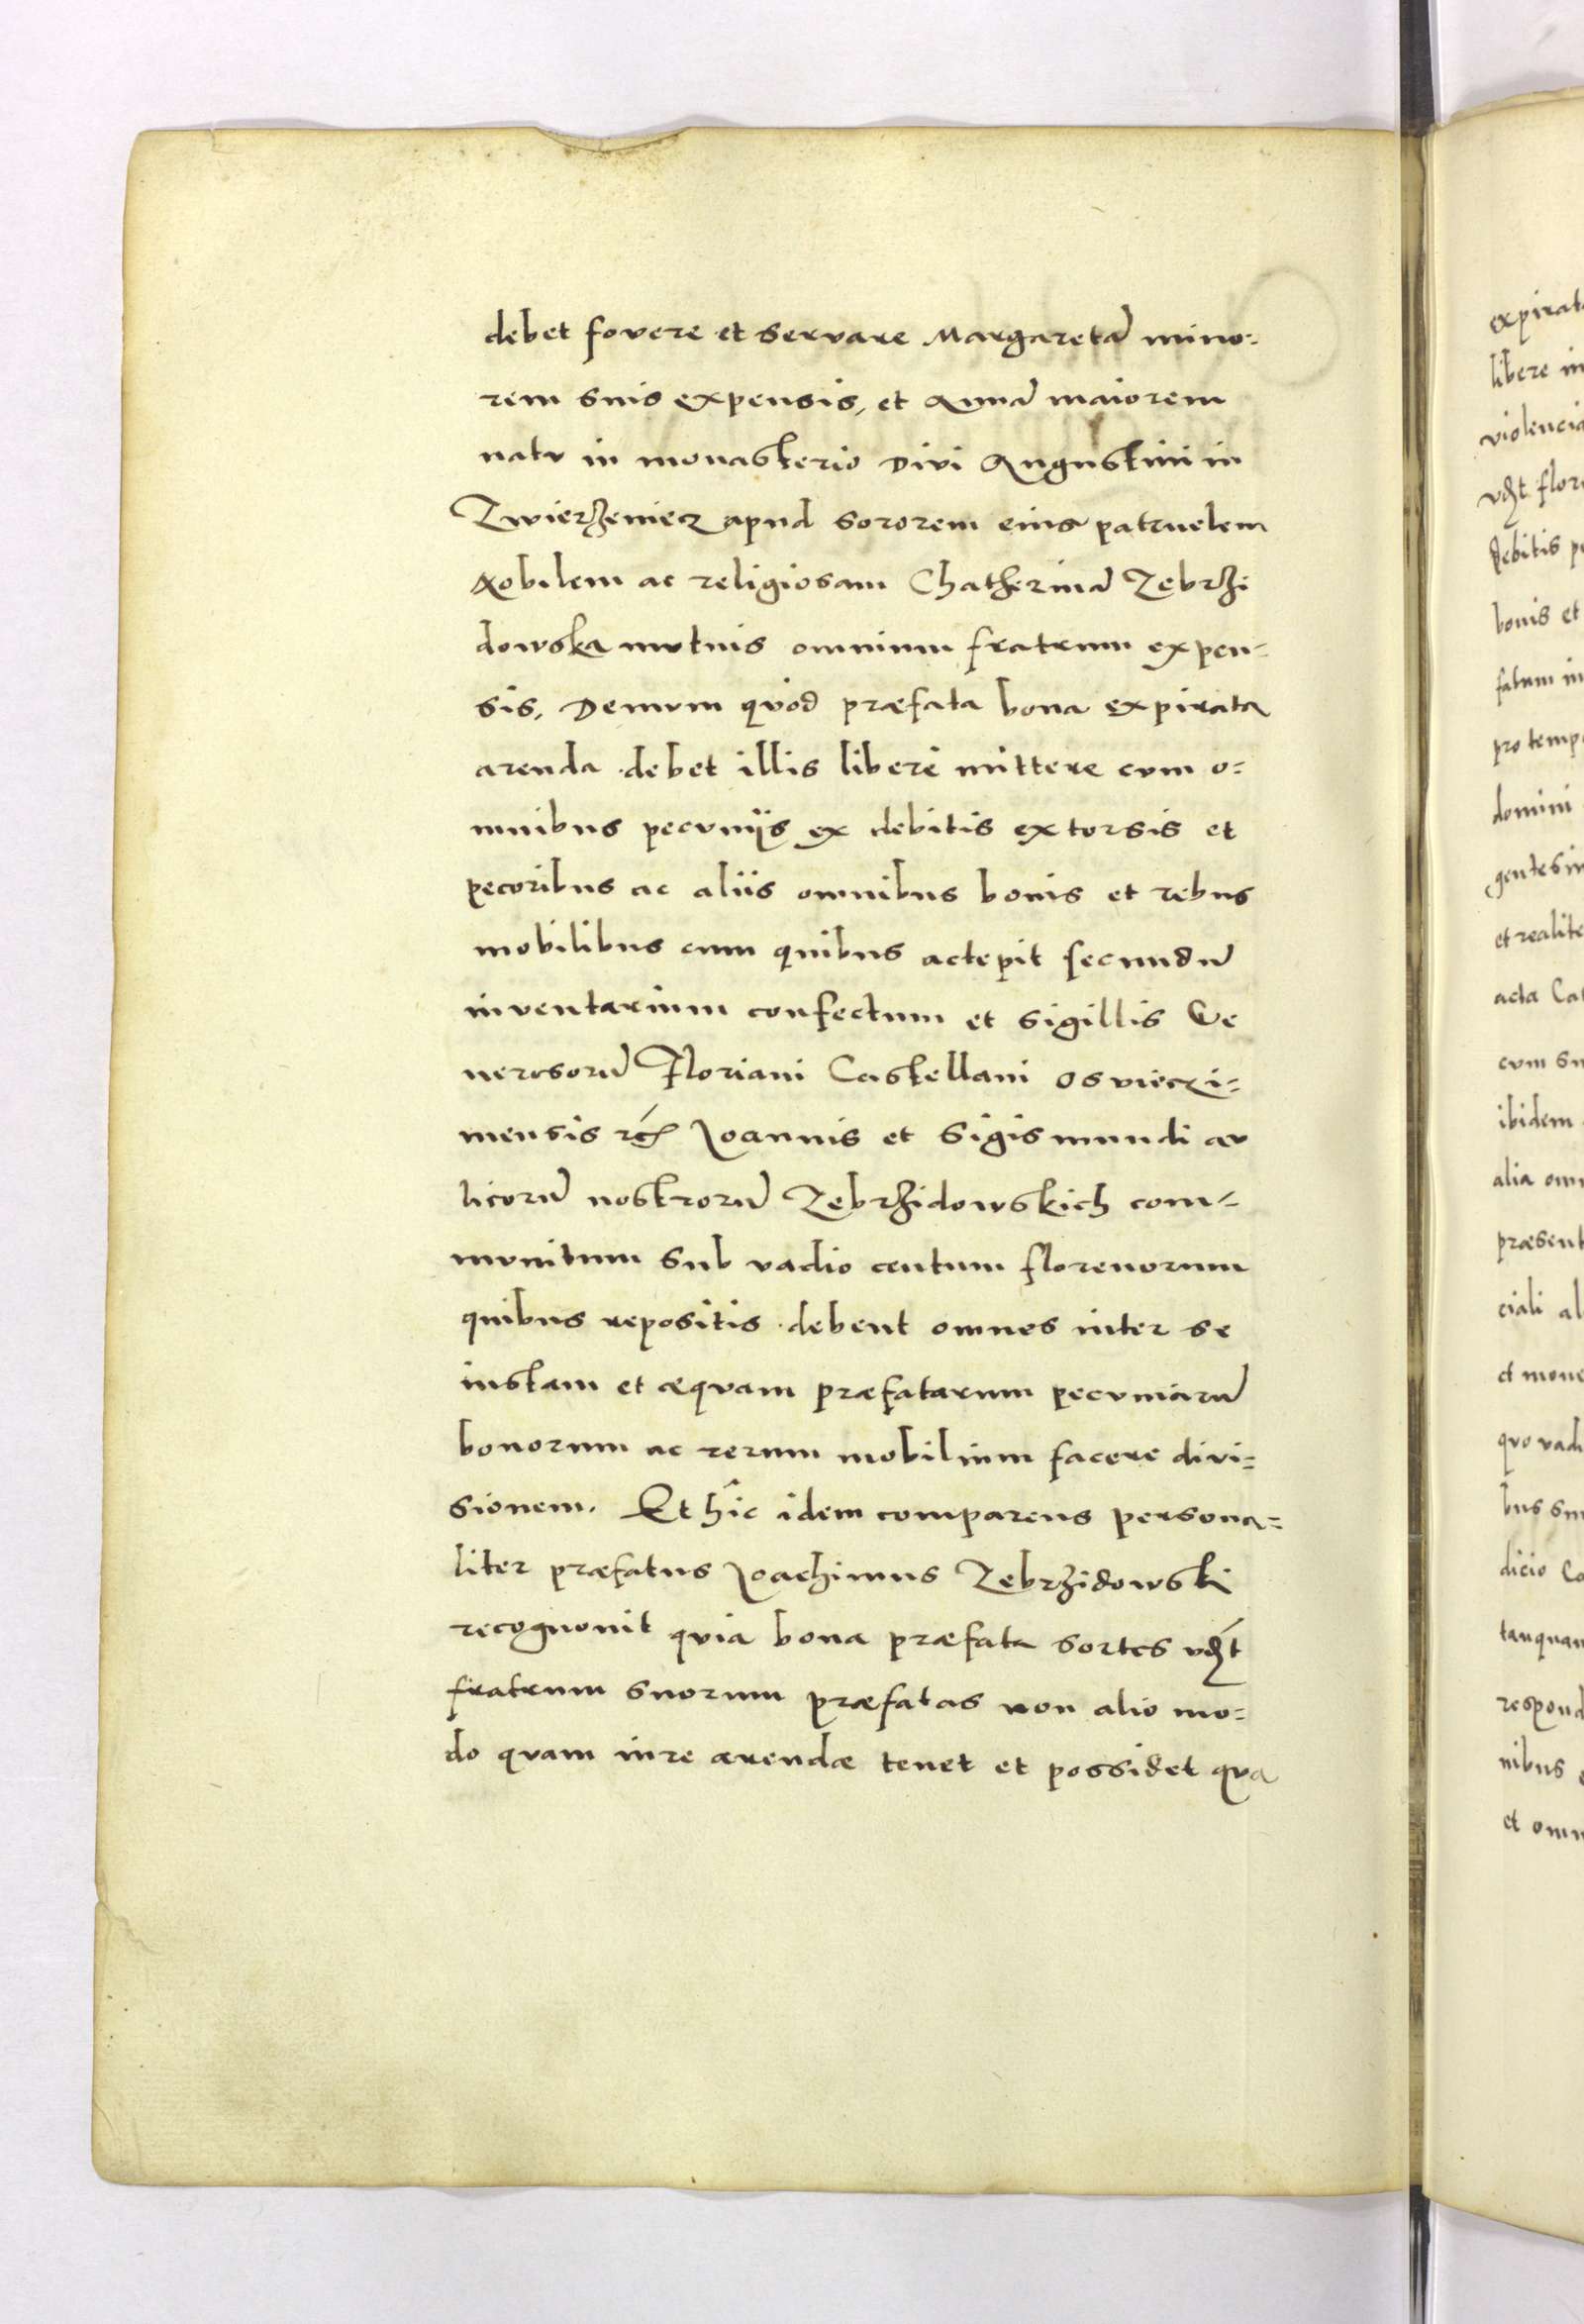 debet fovere et servare Margaretā mino=
rem suis expensis, et Annā maiorem
natv in monasterio Divi Augustini in
Zwierzeniecz apud sororem eius patruelem
Nobilem ac religiosam Chatherinā Zebrzi
dowska mvtuis omnium fratrum expen=
sis, Demvm qvod præfata bona expirata
arenda debet illis liberè mittere cvm o=
mnibus pecvniis ex debitis extorsis et
pecoribus ac aliis omnibus bonis et rebus
mobilibus cum quibus accepit secundū
inventarium confectum et sigillis Ge
nerosorū Floriani Castellani Osvieczi=
mensis Joannis et Sigismundi av
licorū nostrorū Zebrzidowskich com=
mvnitum sub vadio centum florenorum
quibus repositis debent omnes inter se
iustam et æqvam præfatarum pecvniarū
bonorum ac rerum mobilium facere divi=
sionem. Et hîc idem comparens persona=
liter præfatus Joachimus Zebrzidowski
recognovit qvia bona præfata sortes
fratrum suorum præfatas non alio mo=
do qvam iure arendæ tenet et possidet qva
expirat
libere in
violencia
flor
debitis p
bonis et
fatum in
pro temp
domini
gentesim
et realite
acta Cat
cvm su
ibidem
alia omn
præsent
ciali al
et mone
qvo vadi
bus sn
dicio Ca
tanquam
respond
nibus e
et omn